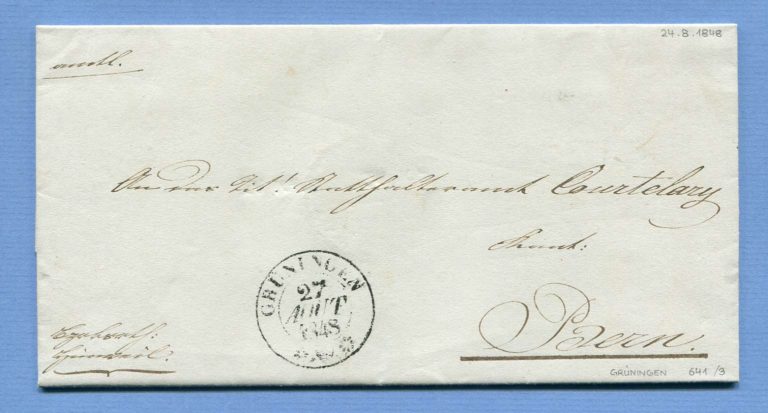 24.8.1848
amtl.
An das Tit! Statthalteramt Courtelary
Kant:
Bern.
GRÜNINGEN
27
AOUT
1848
Hinweil.
GRÜNINGEN 641/3